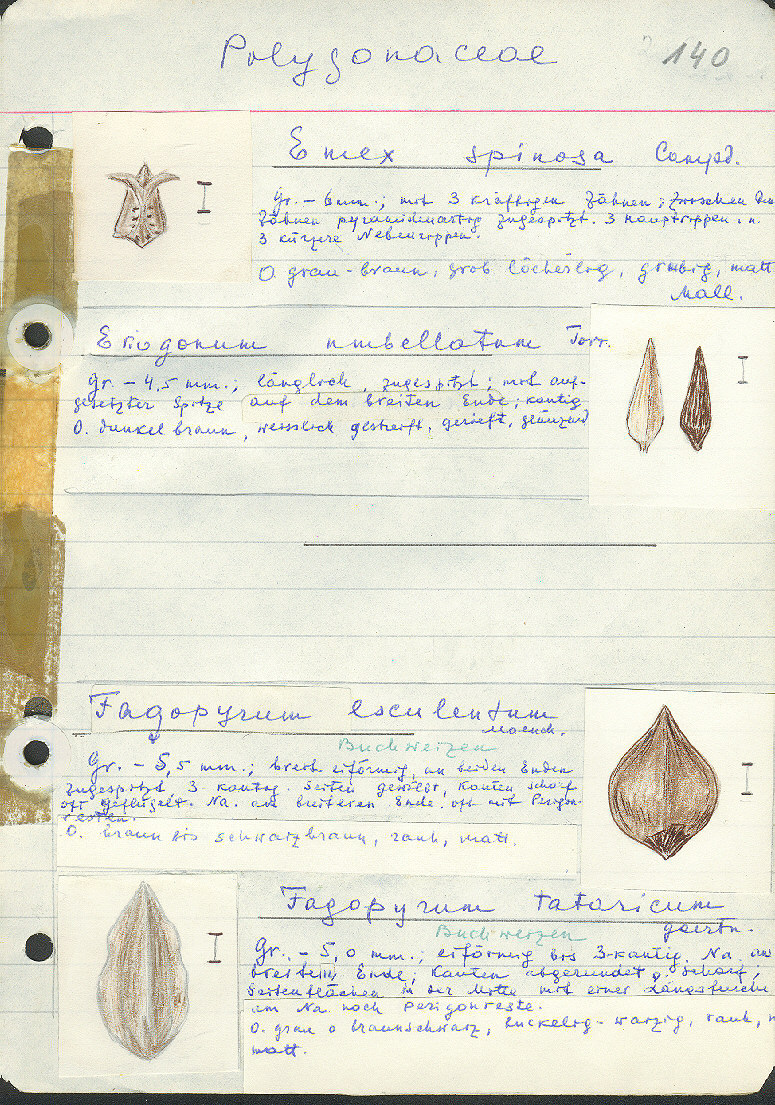 Polygonaceae
140
Emex spinosa Campd.
Gr. – 6 mm.; mit 3 kräftigen Zähnen; zwischen den
Zähnen pyramidenartig zugespitzt. 3 Hauptrippen. u.
3 kürzere Nebenrippen.
O. grau-braun, grob löcherig, grubig, matt
Mall.
Eriogonum umbellatum Torr.
Gr. – 4,5 mm.; länglich, zugespitzt; mit auf-
gesetzter Spitze auf dem breiten Ende; kantig
O. dunkelbraun, weisslich gestreift, gerieft, glänzend
Fagopyrum esculentum
Moench.
Buchweizen
Gr. – 5,5 mm.; breit eiförmig, an beiden Enden
zugespitzt, 3 kantig. Seiten gewölbt, Kanten scharf
oft geflügelt. Na. am breiteren Ende. oft mit Perigon-
resten.
O. braun bis schwarzbraun, rauh, matt.
Fagopyrum tataricum
gaertn.
Buchweizen
Gr. – 5,0 mm.; eiförmig bis 3-kantig. Na. am
breitem Ende, Kanten abgerundet o scharf,
Seitenflächen in der Mitte mit einer Längsfurche
am Na. noch Perigonreste.
O. grau o braunschwarz, buckelig-warzig, rauh,
matt.